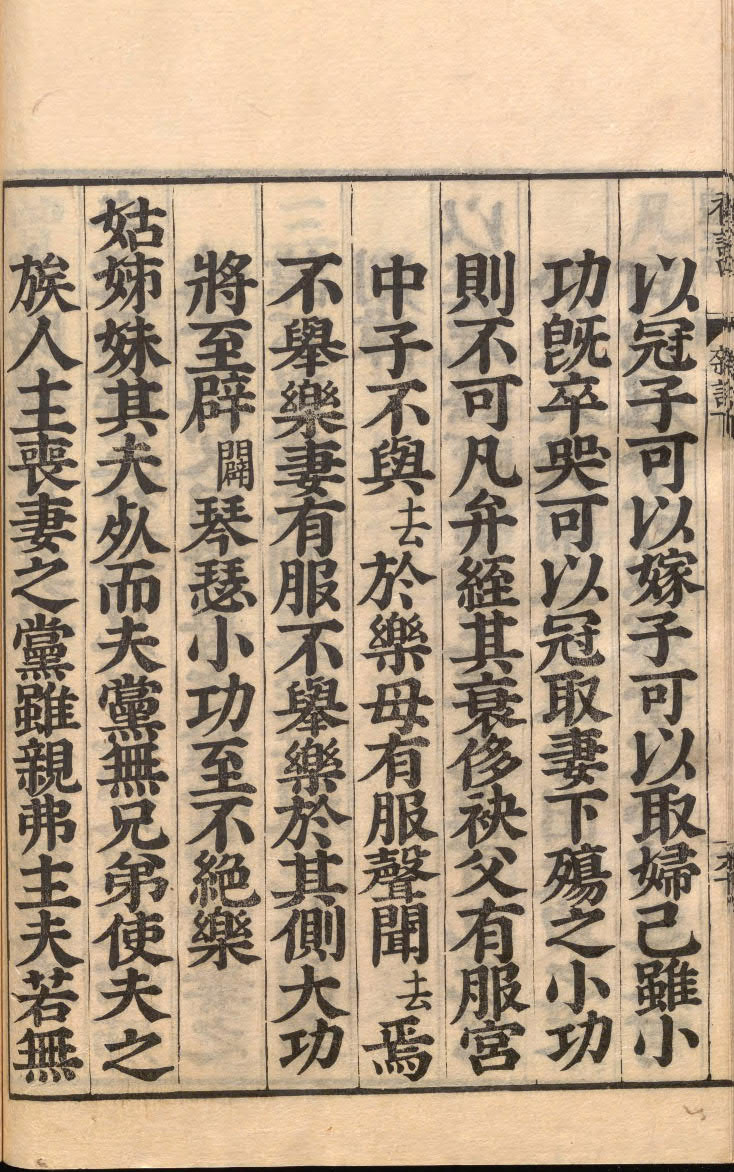 以冠子可以嫁子可以取婦己雖小
功旣卒哭可以冠取妻下殤之小功
則不可凡弁絰其衰侈袂父有服宮
中子不與去於樂母有服聲聞去焉
不舉樂妻有服不舉樂於其側大功
將至辟闢琴瑟小功至不絶樂
姑姊妹其夫死而夫黨無兄弟使夫之
族人主喪妻之黨雖親弗主夫若無